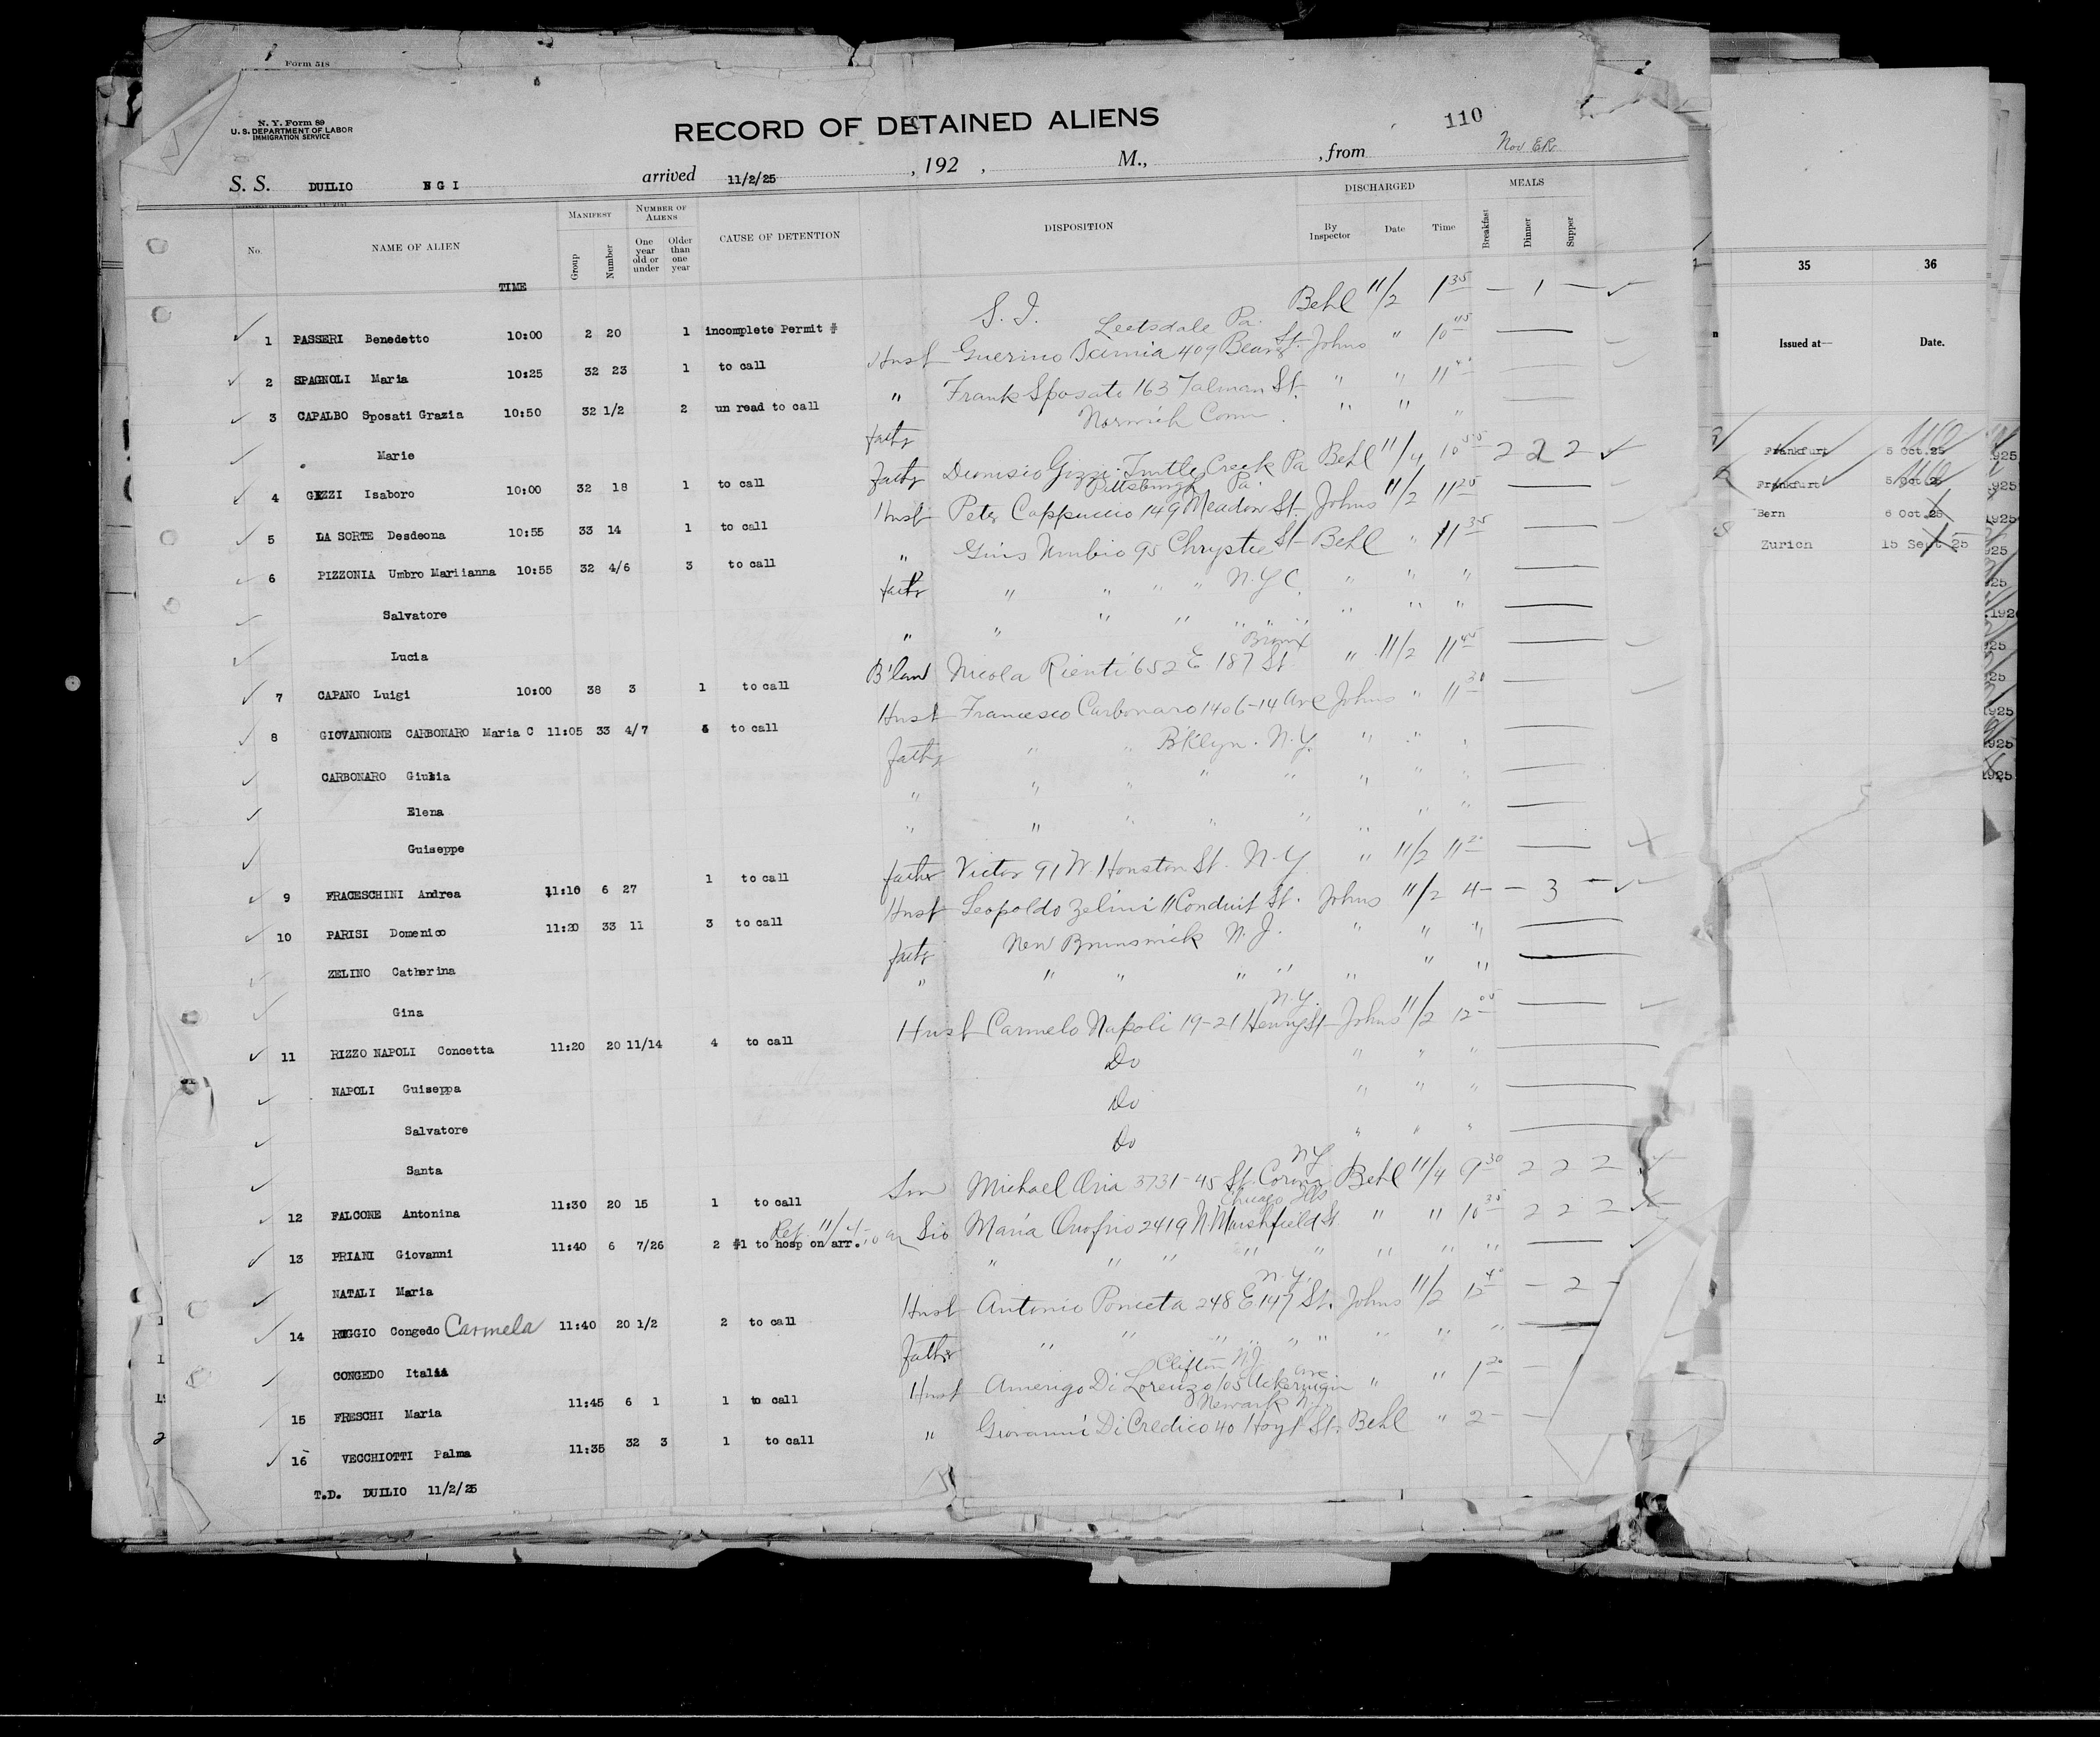 Form 518
N. Y. Form 89
U. S. DEPARTMENT OF LABOR
IMMIGRATION SERVICE
RECORD OF DETAINED ALIENS
110
S. S. DUILIO N G I arrived 11/2/25, 192 , M., , from Nov ER
No. NAME OF ALIEN MANIFEST NUMBER OF ALIENS CAUSE OF DETENTION DISPOSITION DISCHARGED MEALS
Group Number One year old or under Older than one year By Inspector Date Time Breakfast Dinner Supper
TIME
1 PASSERI Benedetto 10:00 2 20 1 incomplete Permit # S. I. Behl 11/2 1 35 — 1 —
Leetsdale Pa.
2 SPAGNOLI Maria 10:25 32 23 1 to call Husb Guerino 409 Beaver St. Johns " 10 45
3 CAPALBO Sposati Grazia 10:50 32 1/2 2 un read to call " Frank Sposato 163 Talman St. " "
Marie fathr Norwich Conn " " "
4 GEZZI Isaboro 10:00 32 18 1 to call fathr Dionisio Gozzi Turtle Creek Pa Behl 11/4 10 55 2 2 2
Pittsburgh Pa.
5 LA SORTE Desdeona 10:55 33 14 1 to call Husb Peter Cappuccio 149 Meadow St. Johns 11/2 11 25
6 PIZZONIA Umbro Mariianna 10:55 32 4/6 3 to call " 95 Chrystie St Behl " 11 35
Salvatore fathr " " " " N.Y.C. " " "
Lucia " " " " " " " " " "
Bronx
7 CAPANO Luigi 10:00 38 3 1 to call B'law Nicola Rienti 652 E 187 St " 11/2 11 45
8 GIOVANNONE CARBONARO Maria C 11:05 33 4/7 to call Husb Francesco Carbonaro 1406-14 Ave Johns " 11 30
CARBONARO Giulia fathr " " B'klyn. N.Y. " " "
Elena " " " " " " " "
Guiseppe " " " " " " " "
9 FRACESCHINI Andrea 11:10 6 27 1 to call father Victor 91 W. Houston St. N-Y " 11/2 11 20
10 PARISI Domenico 11:20 33 11 3 to call Husb Leopoldo Zelini 11 Conduit St. Johns 11/2 4- — 3 —
ZELINO Catherina fathr New Brunswick N. J. " " "
Gina " " " " " " " "
N.Y.
11 RIZZO NAPOLI Concetta 11:20 20 11/14 4 to call Husb Carmelo Napoli 19-21 Henry St Johns 11/2 12 05
NAPOLI Guiseppa Do " " "
Salvatore Do " " "
Santa Do " " "
NY
12 FALCONE Antonina 11:30 20 15 1 to call Son Michael Oria 3731-45 St. Corona Behl 11/4 9 30 2 2 2
Chicago Ills
13 PRIANI Giovanni 11:40 6 7/26 2 #1 to hosp on arr. Sis Maria Onofrio 2419 N. Marshfield St " " 10 35 2 2 2
NATALI Maria " " " " " " " "
N.Y.
14 REGGIO Congedo Carmela 11:40 20 1/2 2 to call Husb Antonio Ponceta 248 E 147 St. Johns 11/2 12 40 — 2 —
CONGEDO Italia Father " " " " " " " " "
Clifton N.J.
15 FRESCHI Maria 11:45 6 1 1 to call Husb Amerigo Di Lorenzo 105 Ave " " 1 20 —
Newark N.J.
16 VECCHIOTTI Palma 11:35 32 3 1 to call " Giovanni Di Credico 40 Hoyt St. Behl " 2 —
T.D. DUILIO 11/2/25
35 36
Issued at— Date.
Frankfurt 5 Oct.25
Frankfurt 5 Oct 25
Bern 6 Oct.25
Zurich 15 Sept 25